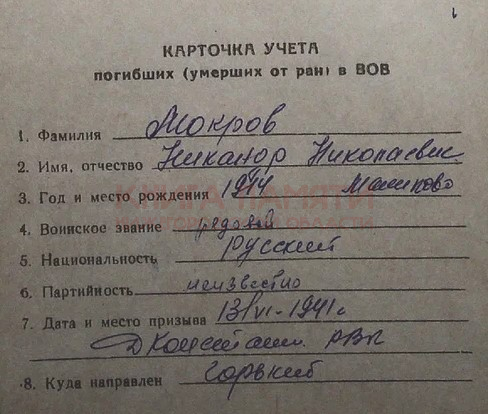 КАРТОЧКА УЧЕТА
погибших (умерших от ран) в ВОВ
1. Фамилия Мокров
2. Имя, отчество Никанор Николаевич
3. Год и место рождения 1914 Малиново
4. Воинское звание рядовой
5. Национальность Русский
6. Партийность неизвестно
7. Дата и место призыва 13/VI-1941г
РВК
8. Куда направлен Горький
КНИГА ПАМЯТИ
НИЖЕГОРОДСКОЙ ОБЛАСТИ